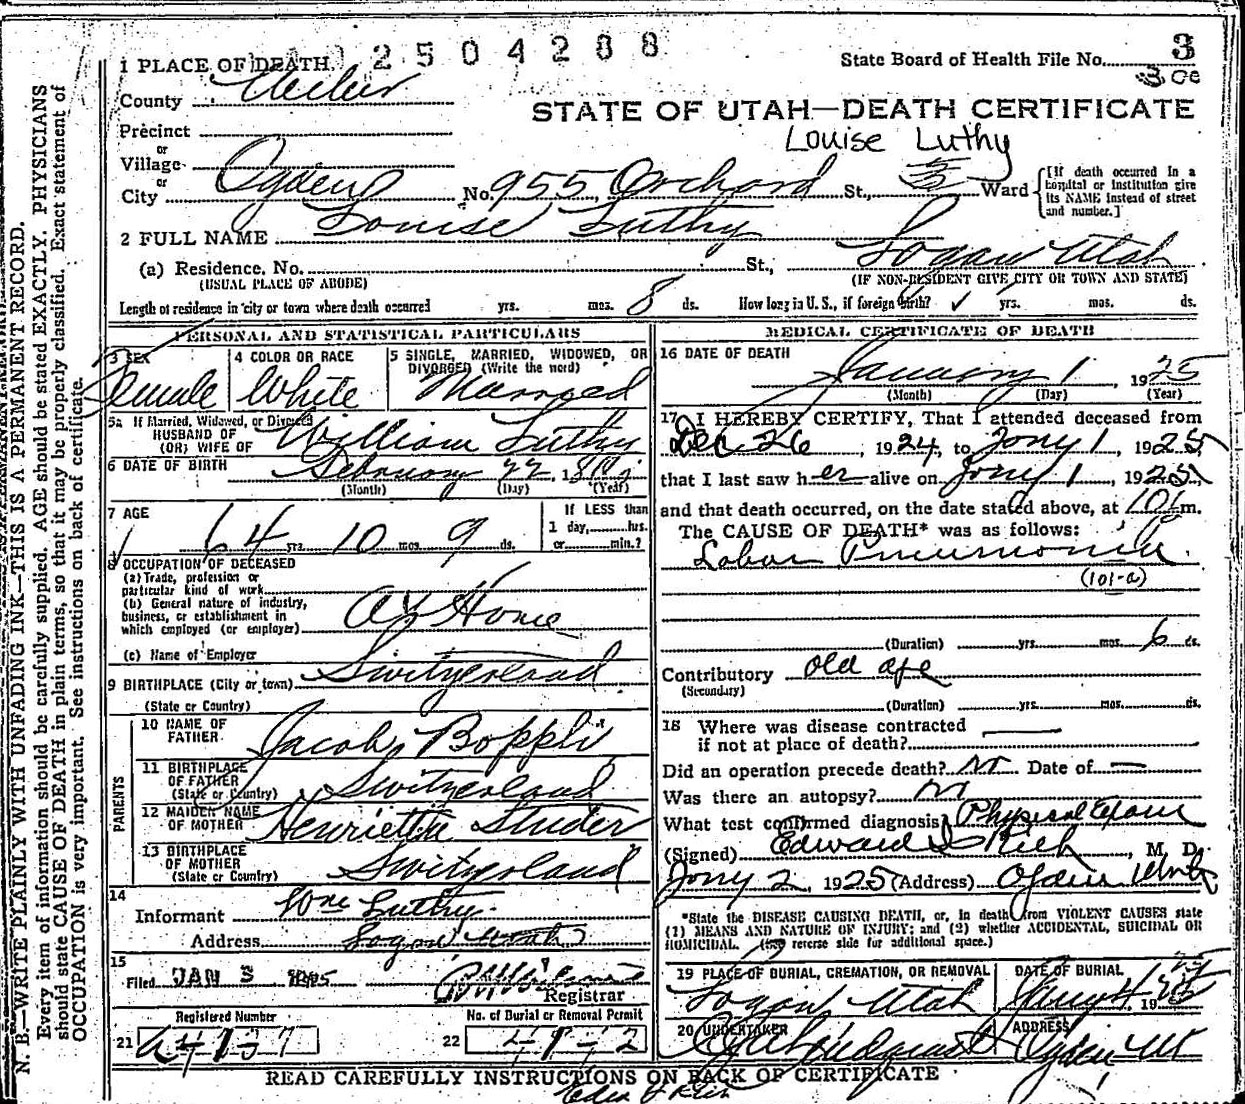 2504288
State Board of Health File No. 3
1 PLACE OF DEATH
County Weber
STATE OF UTAH—DEATH CERTIFICATE
Precinct
Louise Luthy
or
Village
or
City Ogden No. 955 Orchard St., 5 Ward
[If death occurred in a
hospital or institution give
its NAME instead of street
and number.]
2 FULL NAME Louise Luthy
(a) Residence. No. St., Logan Utah
(USUAL PLACE OF ABODE) (IF NON-RESIDENT GIVE CITY OR TOWN AND STATE)
Length of residence in city or town where death occurred yrs. mos. 8 ds. How long in U.S., if foreign birth? yrs. mos. ds.
PERSONAL AND STATISTICAL PARTICULARS
3 SEX
Female
4 COLOR OR RACE
White
5 SINGLE, MARRIED, WIDOWED, OR
DIVORCED (Write the word)
Married
5a If Married, Widowed, or Divorced
HUSBAND OF
(OR) WIFE OF William Luthy
6 DATE OF BIRTH February 22, 18
(Month) (Day) (Year)
7 AGE
64 yrs. 10 mos. 9 ds.
If LESS than
1 day, hrs.
or min.?
8 OCCUPATION OF DECEASED
(a) Trade, profession or
particular kind of work
(b) General nature of industry,
business, or establishment in
which employed (or employer) At Home
(c) Name of Employer
9 BIRTHPLACE (City or town) Switzerland
(State or Country)
PARENTS
10 NAME OF
FATHER Jacob Boppli
11 BIRTHPLACE
OF FATHER
(State or Country) Switzerland
12 MAIDEN NAME
OF MOTHER Henrietta Studer
13 BIRTHPLACE
OF MOTHER
(State or Country) Switzerland
14
Informant Wm Luthy
Address Logan Utah
15
Filed JAN 3 1925
Registrar
Registered Number
21 A4137
No. of Burial or Removal Permit
22
MEDICAL CERTIFICATE OF DEATH
16 DATE OF DEATH
January 1, 1925
(Month) (Day) (Year)
17 I HEREBY CERTIFY, That I attended deceased from
Dec 26, 1924, to Jany 1, 1925,
that I last saw her alive on Jany 1, 1925,
and that death occurred, on the date stated above, at 10 m.
The CAUSE OF DEATH* was as follows:
Lobar Pneumonia
(101-a)
(Duration) yrs. mos. 6 ds.
Contributory old age
(Secondary)
(Duration) yrs. mos. ds.
18 Where was disease contracted
if not at place of death?
Did an operation precede death? no Date of —
Was there an autopsy? no
What test confirmed diagnosis? Physical Exam
(Signed) Edward I Rich, M. D.
Jany 2, 1925 (Address) Ogden Utah
*State the DISEASE CAUSING DEATH, or, in death from VIOLENT CAUSES state
(1) MEANS AND NATURE OF INJURY; and (2) whether ACCIDENTAL, SUICIDAL OR
HOMICIDAL. (See reverse side for additional space.)
19 PLACE OF BURIAL, CREMATION, OR REMOVAL
Logan Utah
DATE OF BURIAL
Jany 4, 1925
20 UNDERTAKER
Lindquist
ADDRESS
Ogden Ut
READ CAREFULLY INSTRUCTIONS ON BACK OF CERTIFICATE
N. B.—WRITE PLAINLY WITH UNFADING INK—THIS IS A PERMANENT RECORD.
Every item of information should be carefully supplied. AGE should be stated EXACTLY. PHYSICIANS
should state CAUSE OF DEATH in plain terms, so that it may be properly classified. Exact statement of
OCCUPATION is very important. See instructions on back of certificate.